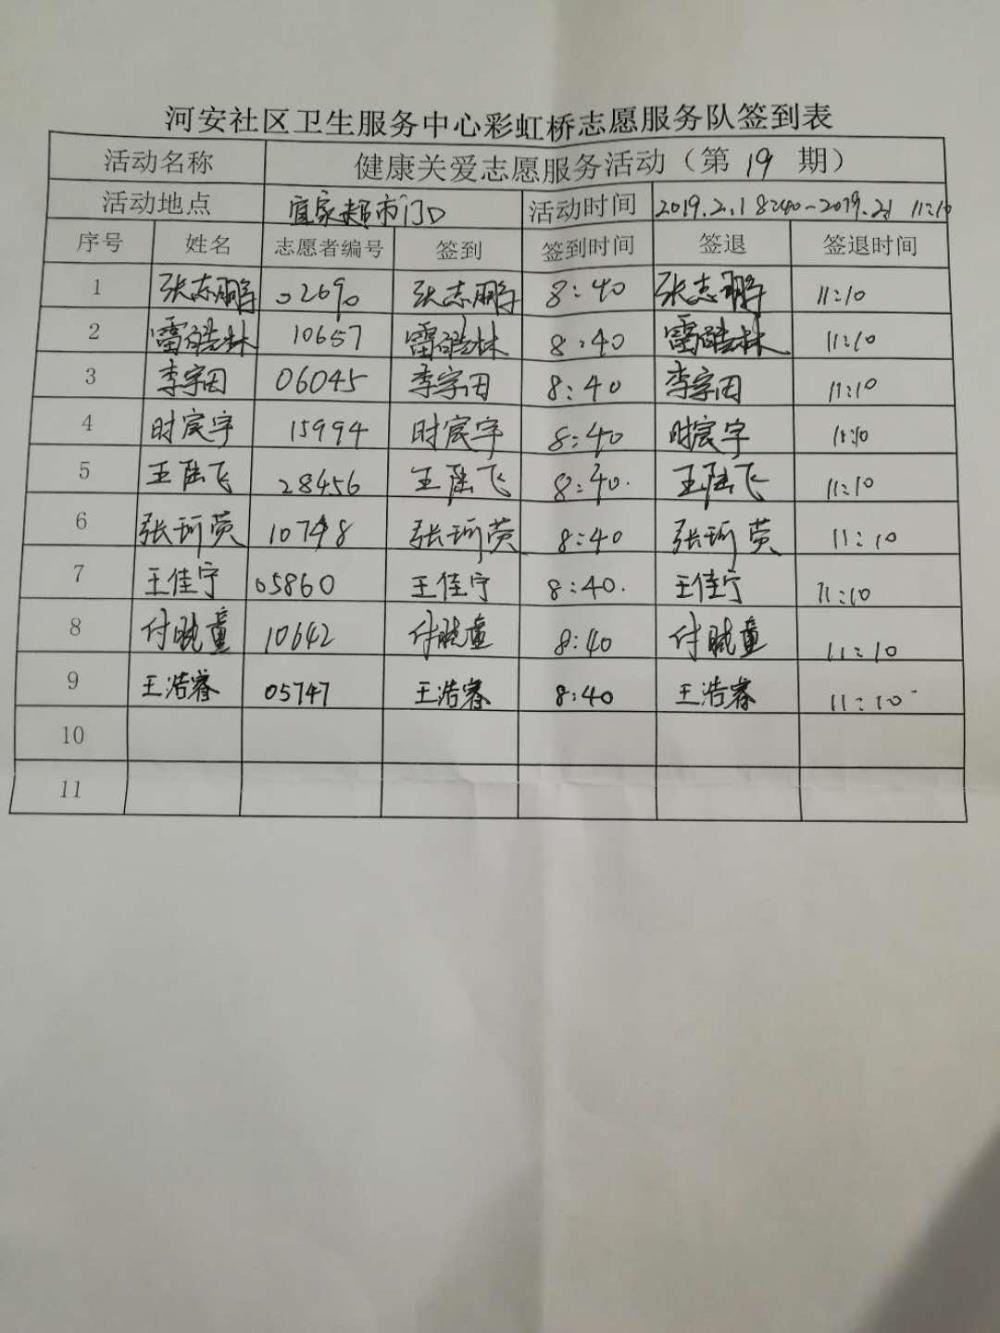 河安社区卫生服务中心彩虹桥志愿服务队签到表
活动名称 健康关爱志愿服务活动（第 19 期）
活动地点 宜家超市门口 活动时间 2019.2.1 8:40~2019.2.1 11:10
序号 姓名 志愿者编号 签到 签到时间 签退 签退时间
1 张志鹏 02690 张志鹏 8:40 张志鹏 11:10
2 雷皓林 10657 雷皓林 8:40 雷皓林 11:10
3 李宗因 06045 李宗因 8:40 李宗因 11:10
4 时宸宇 15994 时宸宇 8:40 时宸宇 11:10
5 王陆飞 28456 王陆飞 8:40. 王陆飞 11:10
6 张珂荧 10748 张珂荧 8:40 张珂荧 11:10
7 王佳宁 05860 王佳宁 8:40. 王佳宁 11:10
8 付晓童 10642 付晓童 8:40 付晓童 11:10
9 王浩睿 05747 王浩睿 8:40 王浩睿 11:10
10
11